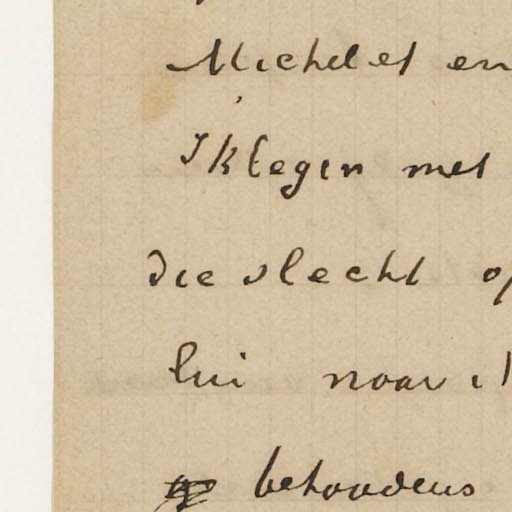 Michelet en
Ik begin met
die slecht op
lui naar
behoudens